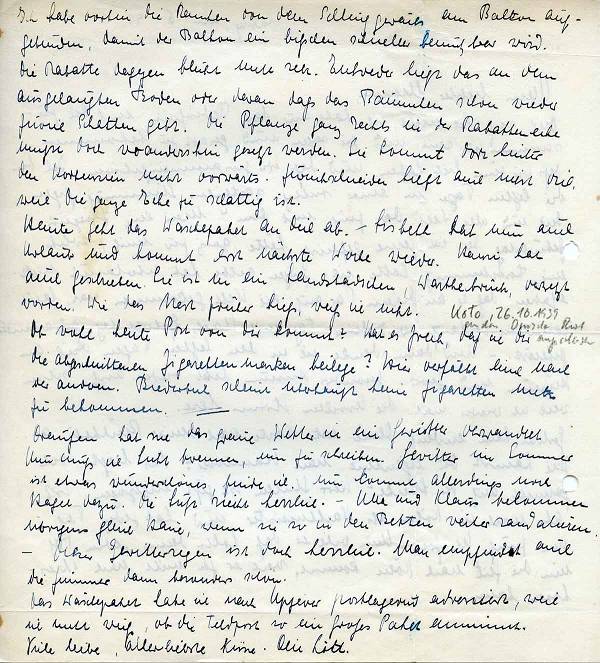 Ich habe vorhin die Ranken von dem Schlinggewächs am Balkon auf-
gebunden, damit der Balkon ein bißchen schneller benutzbar wird.
Die Rabatte dagegen blüht nicht sehr. Entweder liegt das an dem
ausgelaugten Boden oder daran daß das Bäumchen schon wieder
zuviel Schatten gibt. Die Pflanze ganz rechts in der Rabattenecke
müßte doch woandershin gesetzt werden. Sie kommt dort hinter
den nicht vorwärts. Zurückschneiden hilft auch nicht viel,
weil die ganze Ecke zu schattig ist.
Heute geht das Wäschepaket an Dich ab. – hat nun auch
Urlaub und kommt erst nächste Woche wieder. Hanni hat
auch geschrieben. Sie ist in ein Landstädtchen, Warthebrück, versetzt
worden. Wie das Nest früher hieß, weiß ich nicht. Koło, 26.10.1939
Ob wohl heute Post von Dir kommt? Hat es Zweck, daß ich Dir
die abgeschnittenen Zigarettenmarken beilege? Hier verfällt eine nach
der anderen. scheint überhaupt keine Zigaretten mehr
zu bekommen.
Draußen hat sich das graue Wetter in ein Gewitter verwandelt
Nun muß ich Licht brennen, um zu schreiben. Gewitter im Sommer
ist etwas wunderschönes, finde ich. Nun kommt allerdings noch
Hagel dazu. Die Luft riecht herrlich. – Ulle und Klaus bekommen
morgens gleich Haue, wenn sie so in den Betten weiter randalieren.
– Dieser Gewitterregen ist doch herrlich. Man empfindet auch
die Zimmer dann besonders schön.
Das Wäschepaket habe ich nach postlagernd adressiert, weil
ich nicht weiß, ob die Feldpost so ein großes Paket annimmt.
Viele liebe, allerliebste Küsse. Dein Lott.